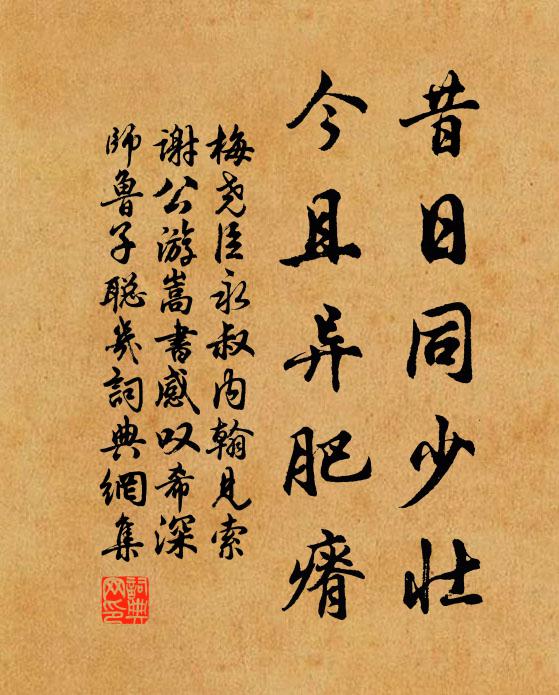 昔日同少壮
今且异肥瘠
梅尧臣永叔内翰见索
谢公游嵩书感叹希深
師鲁子聪幾詞典網集
詞典网印